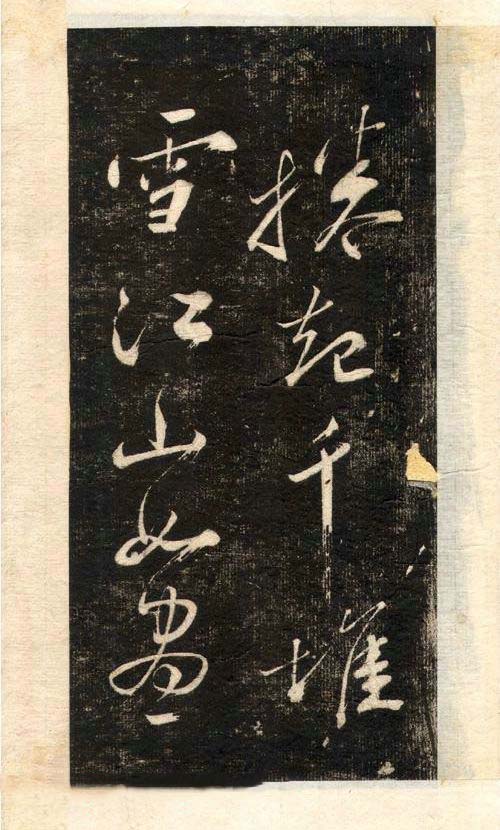 捲起千堆
雪江山如畫